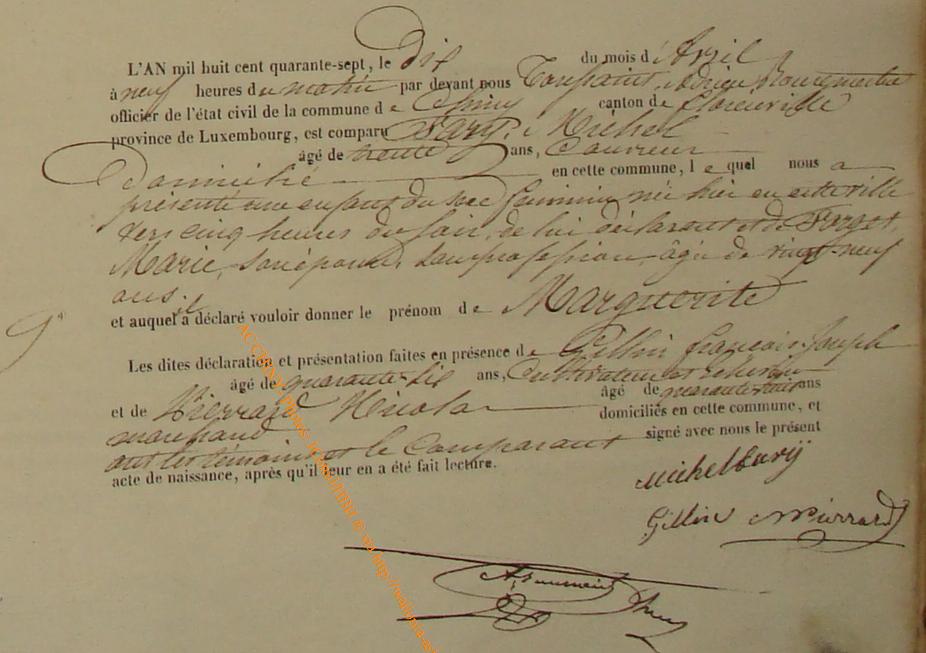 L'AN mil huit cent quarante-sept, le Dix du mois d'Avril
à neuf heures du matin par devant nous Toussaint, Adrien
officier de l'état civil de la commune de canton de Florenville
province de Luxembourg, est comparu Michel
âgé de trente ans, Couvreur
Domicilié en cette commune, lequel nous a
présenté une enfant du sexe féminin né hier en cette ville
vers cinq heures du soir, de lui déclarant et de
Marie, son épouse, sans profession âgée de vingt-neuf
ans.
et auquel a déclaré vouloir donner le prénom de Marguerite
Les dites déclaration et présentation faites en présence de Gillin françois-Joseph
âgé de quarante-six ans, Cultivateur et échevin
et de Pierrard Nicolas âgé de ans
marchand domiciliés en cette commune, et
ont les témoins et le Comparant signé avec nous le présent
acte de naissance, après qu'il leur en a été fait lecture.
Gillin NPierrard